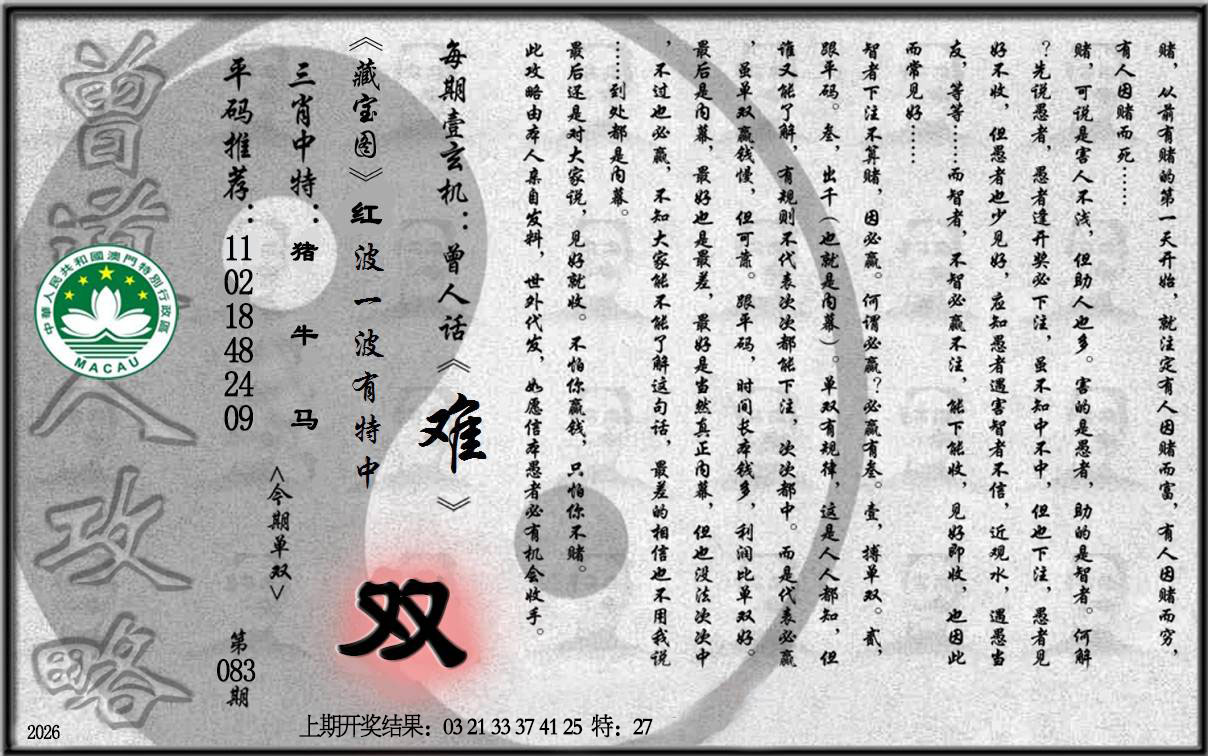 赌，从前有赌的第一天开始，就注定有人因赌而富，有人因赌而穷，
有人因赌而死……
赌，可说是害人不浅，但助人也多。害的是愚者，助的是智者。何解
？先说愚者，愚者逢开奖必下注，虽不知中不中，但也下注，愚者见
好不收，但愚者也少见好，应知愚者遇害智者不信，近观水，遇愚当
友，等等……而智者，不智必赢不注，能下能收，见好即收，也因此
而常见好……
智者下注不算赌，因必赢。何谓必赢？必赢有叁。壹，搏单双。贰，
跟平码。叁，出千（也就是内幕）。单双有规律，这是人人都知，但
谁又能了解，有规则不代表次次都能下注，次次都中。而是代表必赢
，虽单双赢钱慢，但可靠。跟平码，时间长本钱多，利润比单双好。
最后是内幕，最好也是最差，最好是当然真正内幕，但也没法次次中
，不过也必赢，不知大家能不能了解这句话，最差的相信也不用我说
……到处都是内幕。
最后还是对大家说，见好就收。不怕你赢钱，只怕你不赌。
此攻略由本人亲自发料，世外代发，如愿信本愚者必有机会收手。
每期壹玄机：曾人话《难》
《藏宝图》红波一波有特中
双
三肖中特：猪 牛 马
<今期单双>
平码推荐：11 02 18 48 24 09
第083期
曾道人攻略
中華人民共和國澳門特別行政區
MACAU
2026
上期开奖结果：03 21 33 37 41 25 特：27